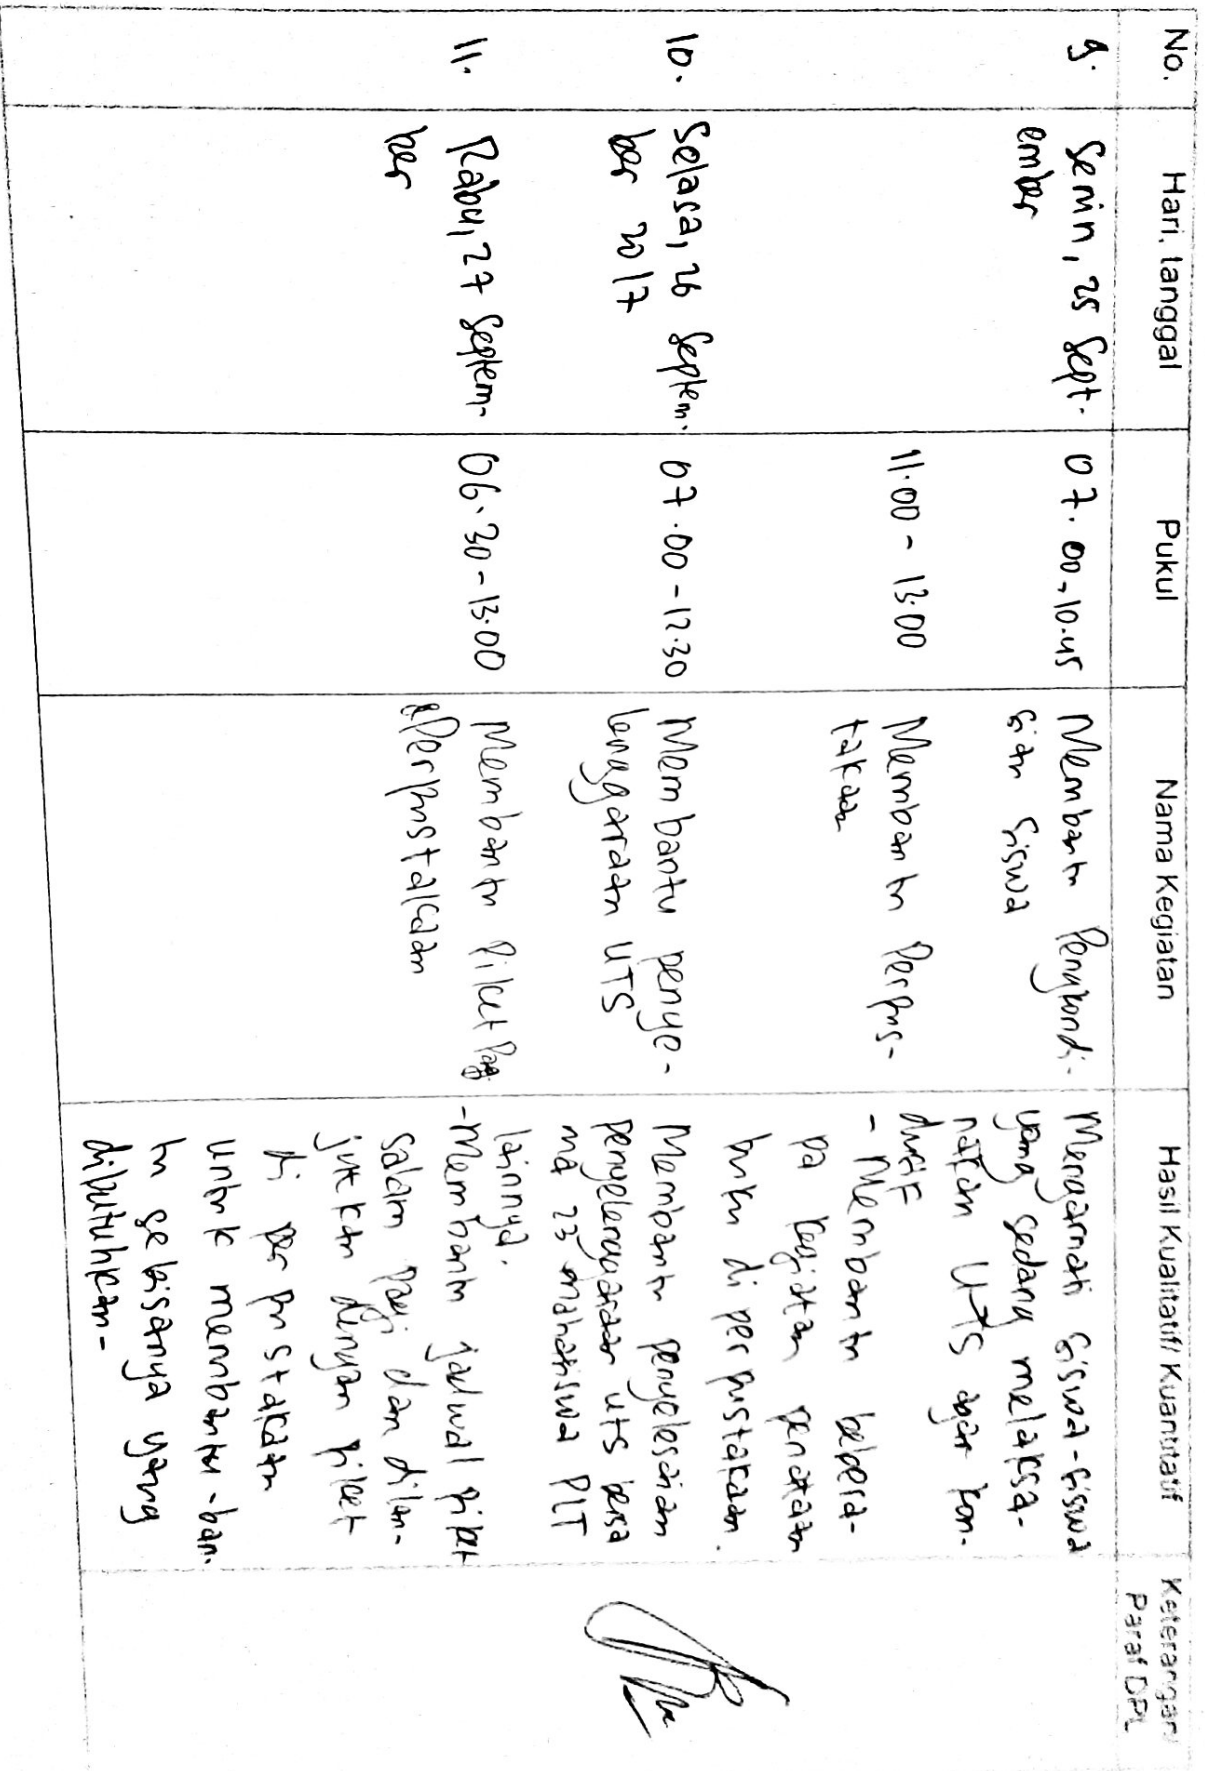 No.
Hari, tanggal
Pukul
Nama Kegiatan
Hasil Kualitatif/ Kuantitatif
Keterangan/
Paraf DPL
9.
Senin, 25 Sept-
ember
07.00-10.45
Membantu Pengkondi-
sian siswa
Mengamati siswa-siswa
yang sedang melaksa-
nakan UTS agar kon-
dusif
11.00 - 13.00
Membantu Perpus-
takaan
- Membantu bebera-
pa kegiatan penataan
buku di perpustakaan.
10.
Selasa, 26 Septem-
ber 2017
07.00-12.30
Membantu penye-
lenggaraan UTS
Membantu penyelesaian
penyelenggaraan UTS bersa
ma 23 mahasiswa PLT
lainnya.
11.
Rabu, 27 Septem-
ber
06.30-13.00
Membantu Piket Pagi
Perpustakaan
-Membantu jadwal piket
salam pagi dan dilan-
jutkan dengan piket
di perpustakaan
untuk membantu-ban-
tu sebisanya yang
dibutuhkan-